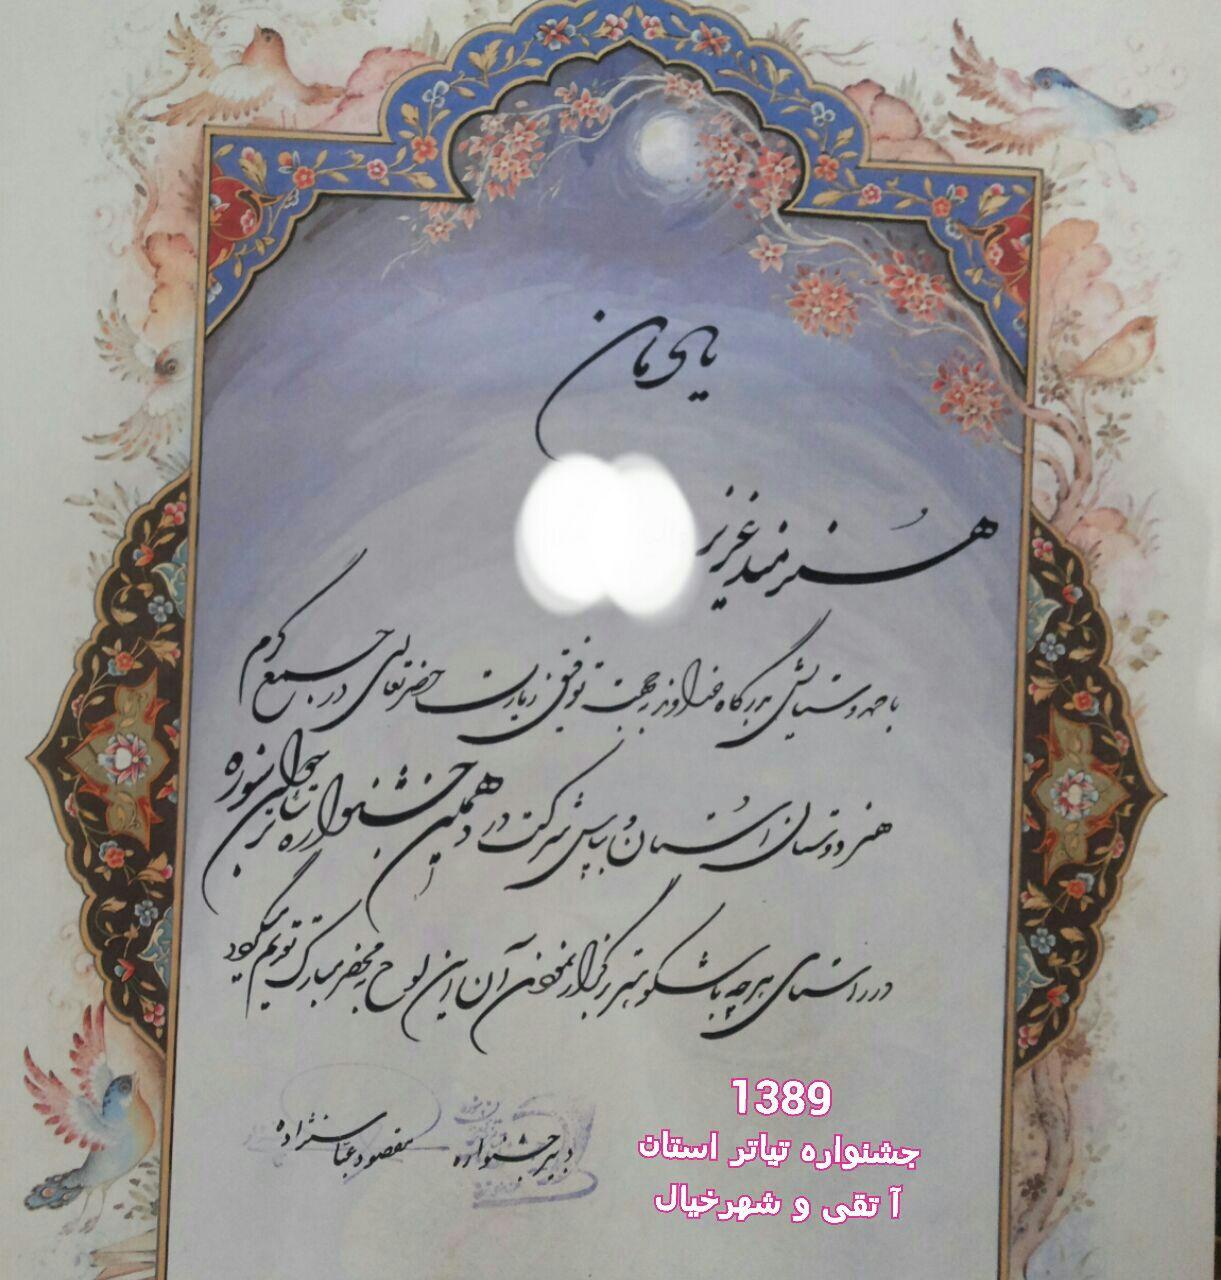 هنرمند عزیز
با حمد و ستایش بدرگاه خداوند جهت توفیق زیارت حضرتعالی در جمع گرم
هنردوستان استان و بپاس شرکت در دهمین جشنواره تئاتر جوان سوره
در راستای هر چه باشکوهتر برگزار نمودن آن این لوح محضر مبارک تقدیم میگردد
دبیر جشنواره
مقصود عباسنژاده
1389
جشنواره تیاتر استان
آ تقی و شهرخیال